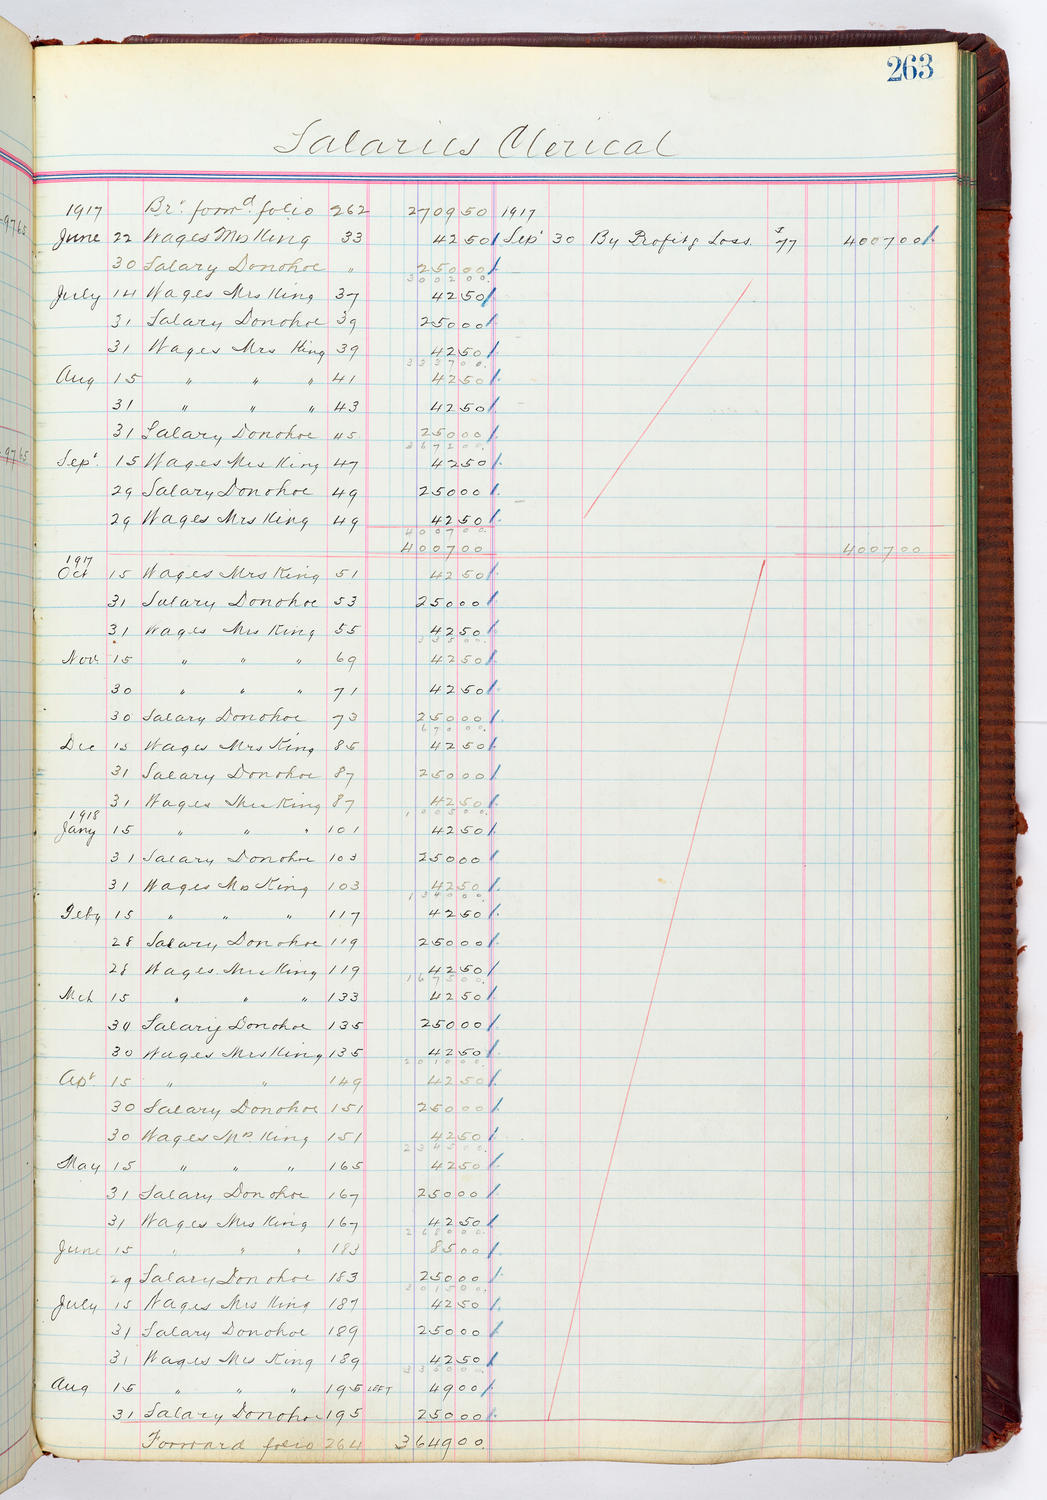 263
Salaries Clerical
1917 Brt. formd. folio 262 270950 1917
June 22 Wages Mrs King 33 4250 Sept 30 By Profit & Loss 77 400700
30 Salary Donohoe " 25000
300200
July 14 Wages Mrs King 37 4250
31 Salary Donohoe 39 25000
31 Wages Mrs King 39 4250
333700
Aug 15 " " " 41 4250
31 " " " 43 4250
31 Salary Donohoe 45 25000
367200
Sept. 15 Wages Mrs King 47 4250
29 Salary Donohoe 49 25000
29 Wages Mrs King 49 4250
400700
400700 400700
1917
Oct 15 Wages Mrs King 51 4250
31 Salary Donohoe 53 25000
31 Wages Mrs King 55 4250
33500
Nov. 15 " " " 69 4250
30 " " " 71 4250
30 Salary Donohoe 73 25000
67000
Dec 15 Wages Mrs King 85 4250
31 Salary Donohoe 87 25000
31 Wages Mrs King 87 4250
100500
1918
Jany 15 " " " 101 4250
31 Salary Donohoe 103 25000
31 Wages Mrs King 103 4250
134000
Feby 15 " " " 117 4250
28 Salary Donohoe 119 25000
28 Wages Mrs King 119 4250
167500
Mch 15 " " " 133 4250
30 Salary Donohoe 135 25000
30 Wages Mrs King 135 4250
201000
Apt 15 " " 149 4250
30 Salary Donohoe 151 25000
30 Wages Mrs King 151 4250
234500
May 15 " " " 165 4250
31 Salary Donohoe 167 25000
31 Wages Mrs King 167 4250
268000
June 15 " " " 183 8500
29 Salary Donohoe 183 25000
301500
July 15 Wages Mrs King 187 4250
31 Salary Donohoe 189 25000
31 Wages Mrs King 189 4250
335000
Aug 15 " " " 195 LEFT 4900
31 Salary Donohoe 195 25000
Forward folio 264 364900